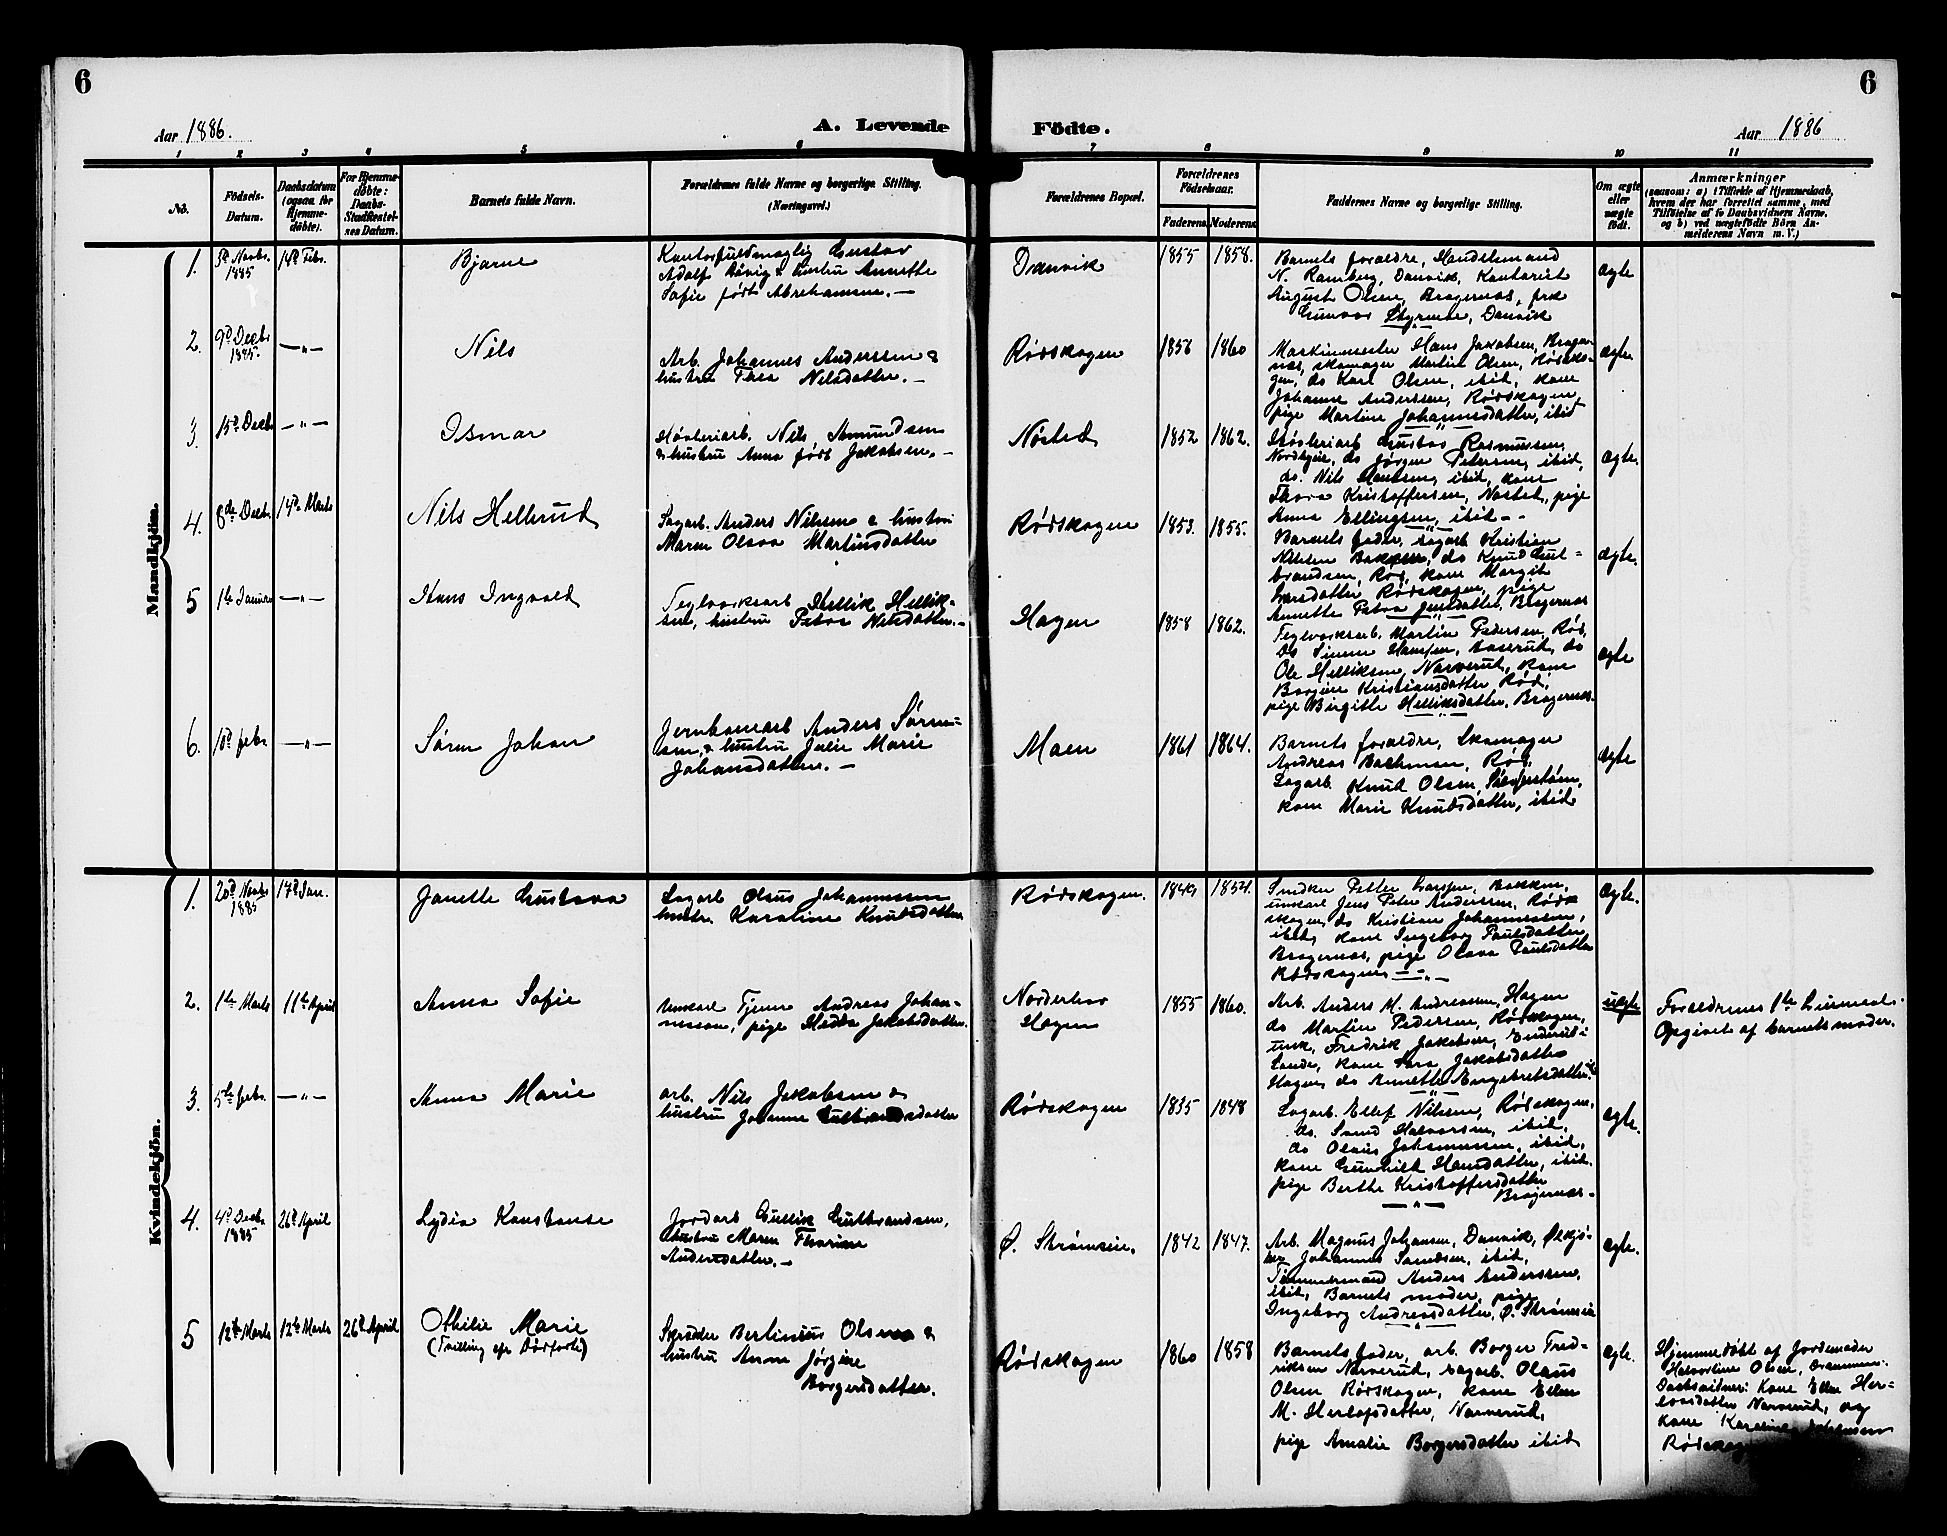 6
6
Aar 1886.
A. Levende
Födte.
Aar 1886
1 2 3 4 5 6 7 8 9 10 11
No.
Födsels-
Datum.
Daabsdatum
(ogsaa for
Hjemme-
döbte).
For Hjemme-
döbte:
Daabs-
Stadfæstel-
ses Datum.
Barnets fulde Navn.
Forældrenes fulde Navne og borgerlige Stilling.
(Næringsvei.)
Forældrenes Bopæl.
Forældrenes
Födselsaar.
Faderens
Moderens
Faddernes Navne og borgerlige Stilling.
Om ægte
eller
uægte
født.
Anmærkninger
(saasom: a) i Tilfælde af Hjemmedaab,
hvem der har forrettet samme, med
Tilföielse af to Daabsvidners Navne,
og b) ved uægtefödte Börn An-
melderens Navn m. V.)
Mandkjön.
1.
5d Novbr.
1885
14d Febr.
Bjarne
Kontorfuldmægtig Gustav
Adolf & hustru Annette
Sofie født Abrahamsen. —
Danvik
1855
1858.
Barnets forældre, Handelsmand
N. Ramberg, Danvik, Kontorist
August Olsen, Bragernæs, frk
Gunvor Styrmoe, Danvik
ægte
2.
9d Decbr
1885.
— „ —
Nils
Arb. Johannes Anderssen &
hustru Thea Nilsdatter. —
Rødskogen
1856
1860
Maskinmester Hans Jakobsen, Brager-
næs, skomager Martin Olsen, Rødsko-
gen, do Karl Olsen, ibid, kone
Johanne Anderssen, Rødskogen,
pige Martine Johannesdatter, ibid
ægte
3.
15d Decbr
— „ —
Osmar
Høvleriarb. Nils Amundsen
& hustru Anna født Jakobsen. —
Nøsted
1852
1862.
Høvleriarb Gustav Rasmussen
Nordbyeie, do Jørgen Petersen, ibid,
do. Nils Hansen, ibid, kone
Thora Kristoffersen, Nøsted, pige
Anna Ellingsen, ibid. —
ægte.
4.
8de Decbr
14de Marts
Nils Hellerud
Sagarb. Anders Nilsen & hustru
Maren Olava Martinsdatter
Rødskogen
1853.
1855.
Barnets fader, sagarb Kristian
Nilsen Bakken, do Knud Gul-
brandsen, Rød, kone Margit
Larsdatter Rødskogen, pige
Annette Petra Jensdatter, Bragernæs
ægte.
5
1te Januar
— „ —
Hans Ingvald
Teglverksarb Hellik Hellik-
sen, hustru Petra Nilsdatter. —
Hagen
1858
1862.
Teglverksarb. Martin Pedersen, Rød,
do Simen Hansen, Aaserud, do
Ole Helliksen, Narverud, kone
Borgine Kristiansdatter Rød,
pige Birgitte Helliksdatter, Bragernæs.
ægte
6.
10d febr.
— „ —
Søren Johan
Jernbanearb Anders Søren-
sen, & hustru Julie Marie
Johansdatter. —
Maen
1861
1864.
Barnets forældre, Skomager
Andreas Bachman, Rød,
Sagarb. Knud Olsen,
kone Marie Knutsdatter, ibid
ægte
Kvindekjön.
1.
20d Novbr
1885
17d Jan.
Janette Gustava
Sagarb Olaus Johannessen
hustru Karoline Knutsdatter
Rødskogen.
1849
1854.
Snedker Petter Larsen, Bakken,
unkarl Jens Peter Anderssen, Røds-
skogen, do Kristian Johannessen,
ibid, kone Ingeborg Paulsdatter,
Bragernæs, pige Olava Paulsdatter
Rødskogen — „ —
ægte.
2.
1te Marts
11te April
Anna Sofie
Unkarl Tjener Andreas Johan-
nessen, pige Hedda Jakobsdatter.
Norderhov
Hagen
1855
1860.
Arb. Anders M. Andreasen, Hagen
do Martin Pedersen, Rødskogen,
unk. Fredrik Jakobsen, Enderud i
Sande, kone Sara Jakobsdatter
Hagen, do Annette Engebretsdatter,
uægte
Forældrenes 1te Leiermaal.
Opgivet af barnets moder.
3.
5te febr.
— „ —
Anna Marie
arb. Nils Jakobsen &
hustru Johanne Gulbrandsdatter
Rødskogen
1835
1848
Sagarb. Ellef Nilsen, Rødskogen,
do. Svend Halvorsen, ibid,
do Olaus Johannessen, ibid,
kone Gunhild Hansdatter, ibid.
pige Berthe Kristoffersdatter
Bragernæs. —
ægte.
4.
4d Decbr
1885
26d April
Lydia Konstanse
Jordarb Gullik Gulbrandsen,
& hustru Maren Thorine
Andersdatter. —
Ø. Strømsøe,
1842
1847.
Arb. Magnus Johansen, Danvik, Ølkjø-
rer Johannes Samdsen, ibid,
Tømmermand Anders Anderssen,
ibid, Barnets moder, pige
Ingeborg Andreasdatter, Ø. Strømsøe
ægte.
5
12te Marts
12te Marts
26d April
Othilie Marie
(Tvilling efr Dødfødt)
Skrædder Bertinius Olsen &
hustru Anne Jørgine
Borgersdatter.
Rødskogen
1860
1858
Barnets fader, arb. Borger Fred-
riksen Narverud, sagarb. Olaus
Olsen Rødskogen, kone Ellen
M. Herlofsdatter, Narverud,
pige Amalie Borgersdatter ibid
ægte.
Hjemmedøbt af Jordemoder
Halvordine Olsen, Drammen.
Daabsvidner: Kone Ellen Her-
lovsdatter Narverud, og
kone Karoline Johansen
Rødskogen